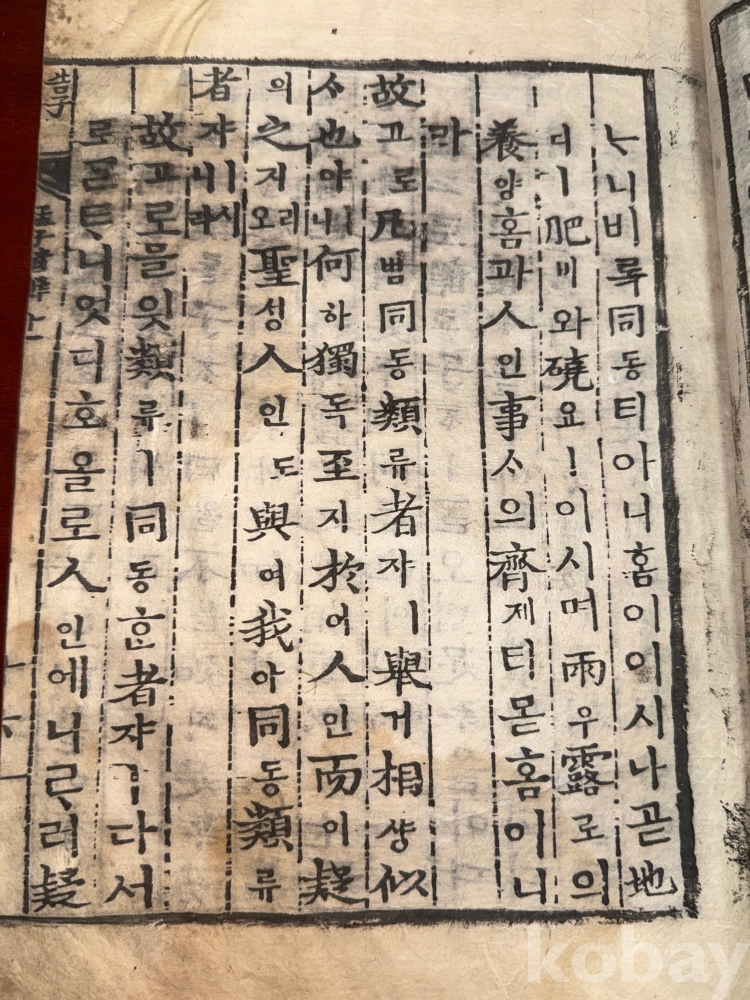 ᄂᆞ니비록同동티아니홈이이시나곧地
디ㅣ肥비와磽요ㅣ이시며雨우露로의
養양홈과人인事ᄉᆞ의齊졔티몯홈이니
라
故고로凡범同동類류者쟈ㅣ擧거相샹似
ᄉᆞ也야ㅣ니何하獨독至지於어人인而이疑
의之지리오聖성人인도與여我아同동類류
者쟈ㅣ시니라
故고로믈읫類류ㅣ同동ᄒᆞᆫ者쟈ㅣ다서
로ᄀᆞᆮᄐᆞ니엇디호올로人인에니르러疑
告子
孟子諺解十一
kobay